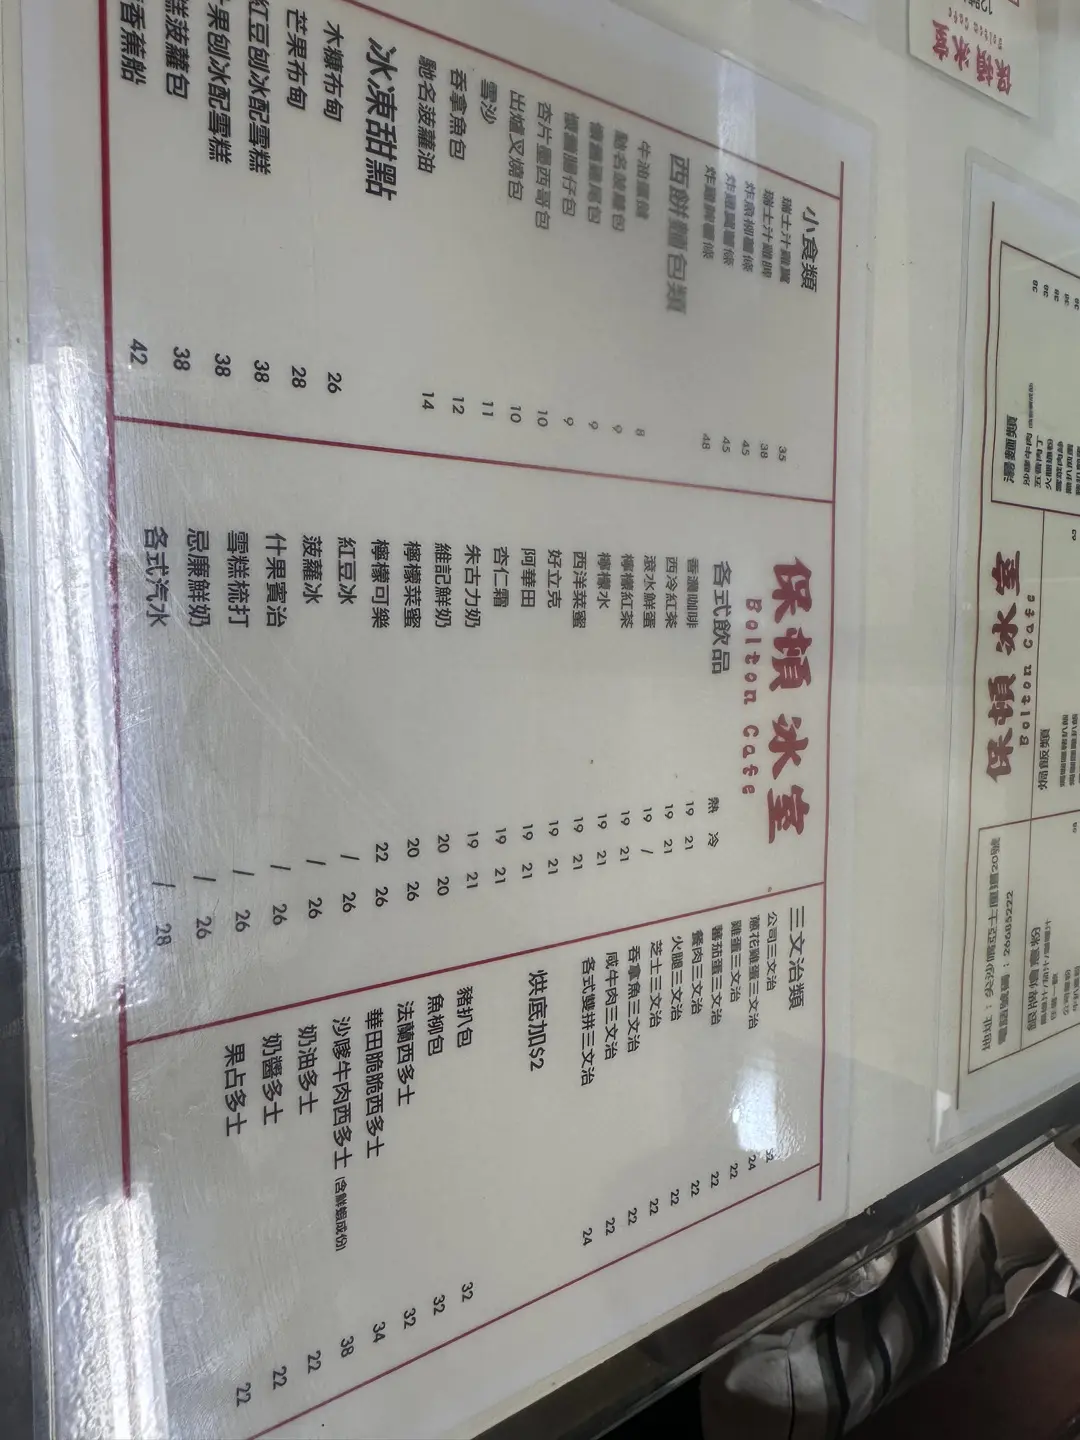 小食類
瑞士汁雞翼 35
瑞士汁雞脾 38
炸魚柳薯條 45
炸雞翼薯條 45
炸雞脾薯條 48
西餅麵包類
牛油蛋撻 8
馳名菠蘿包 9
懷舊雞尾包 9
懷舊腸仔包 9
杏片墨西哥包 10
出爐叉燒包 10
雪沙 11
吞拿魚包 12
馳名菠蘿油 14
冰凍甜點
木糠布甸 26
芒果布甸 28
紅豆刨冰配雪糕 38
果刨冰配雪糕 38
糕菠蘿包 38
香蕉船 42
保頓冰室
Bolton Cafe
各式飲品 熱 冷
香濃咖啡 19 21
西冷紅茶 19 21
滾水鮮蛋 19 /
檸檬紅茶 19 21
檸檬水 19 21
西洋菜蜜 19 21
好立克 19 21
阿華田 19 21
杏仁霜 19 21
朱古力奶 19 21
維記鮮奶 20 20
檸檬菜蜜 20 26
檸檬可樂 22 26
紅豆冰 / 26
菠蘿冰 / 26
什果賓治 / 26
雪糕梳打 / 26
忌廉鮮奶 / 26
各式汽水 / 28
三文治類
公司三文治 32
蔥花雞蛋三文治 24
雞蛋三文治 22
蕃茄蛋三文治 22
餐肉三文治 22
火腿三文治 22
芝士三文治 22
吞拿魚三文治 22
咸牛肉三文治 22
各式雙拼三文治 24
烘底加$2
豬扒包 32
魚柳包 32
法蘭西多士 32
華田脆脆西多士 34
沙嗲牛肉西多士 (含鮮蝦成份) 38
奶油多士 22
奶醬多士 22
果占多士 22
保頓冰室
Bolton Cafe
保頓冰室
Bolton Cafe
焗飯類
電話號碼：26685222